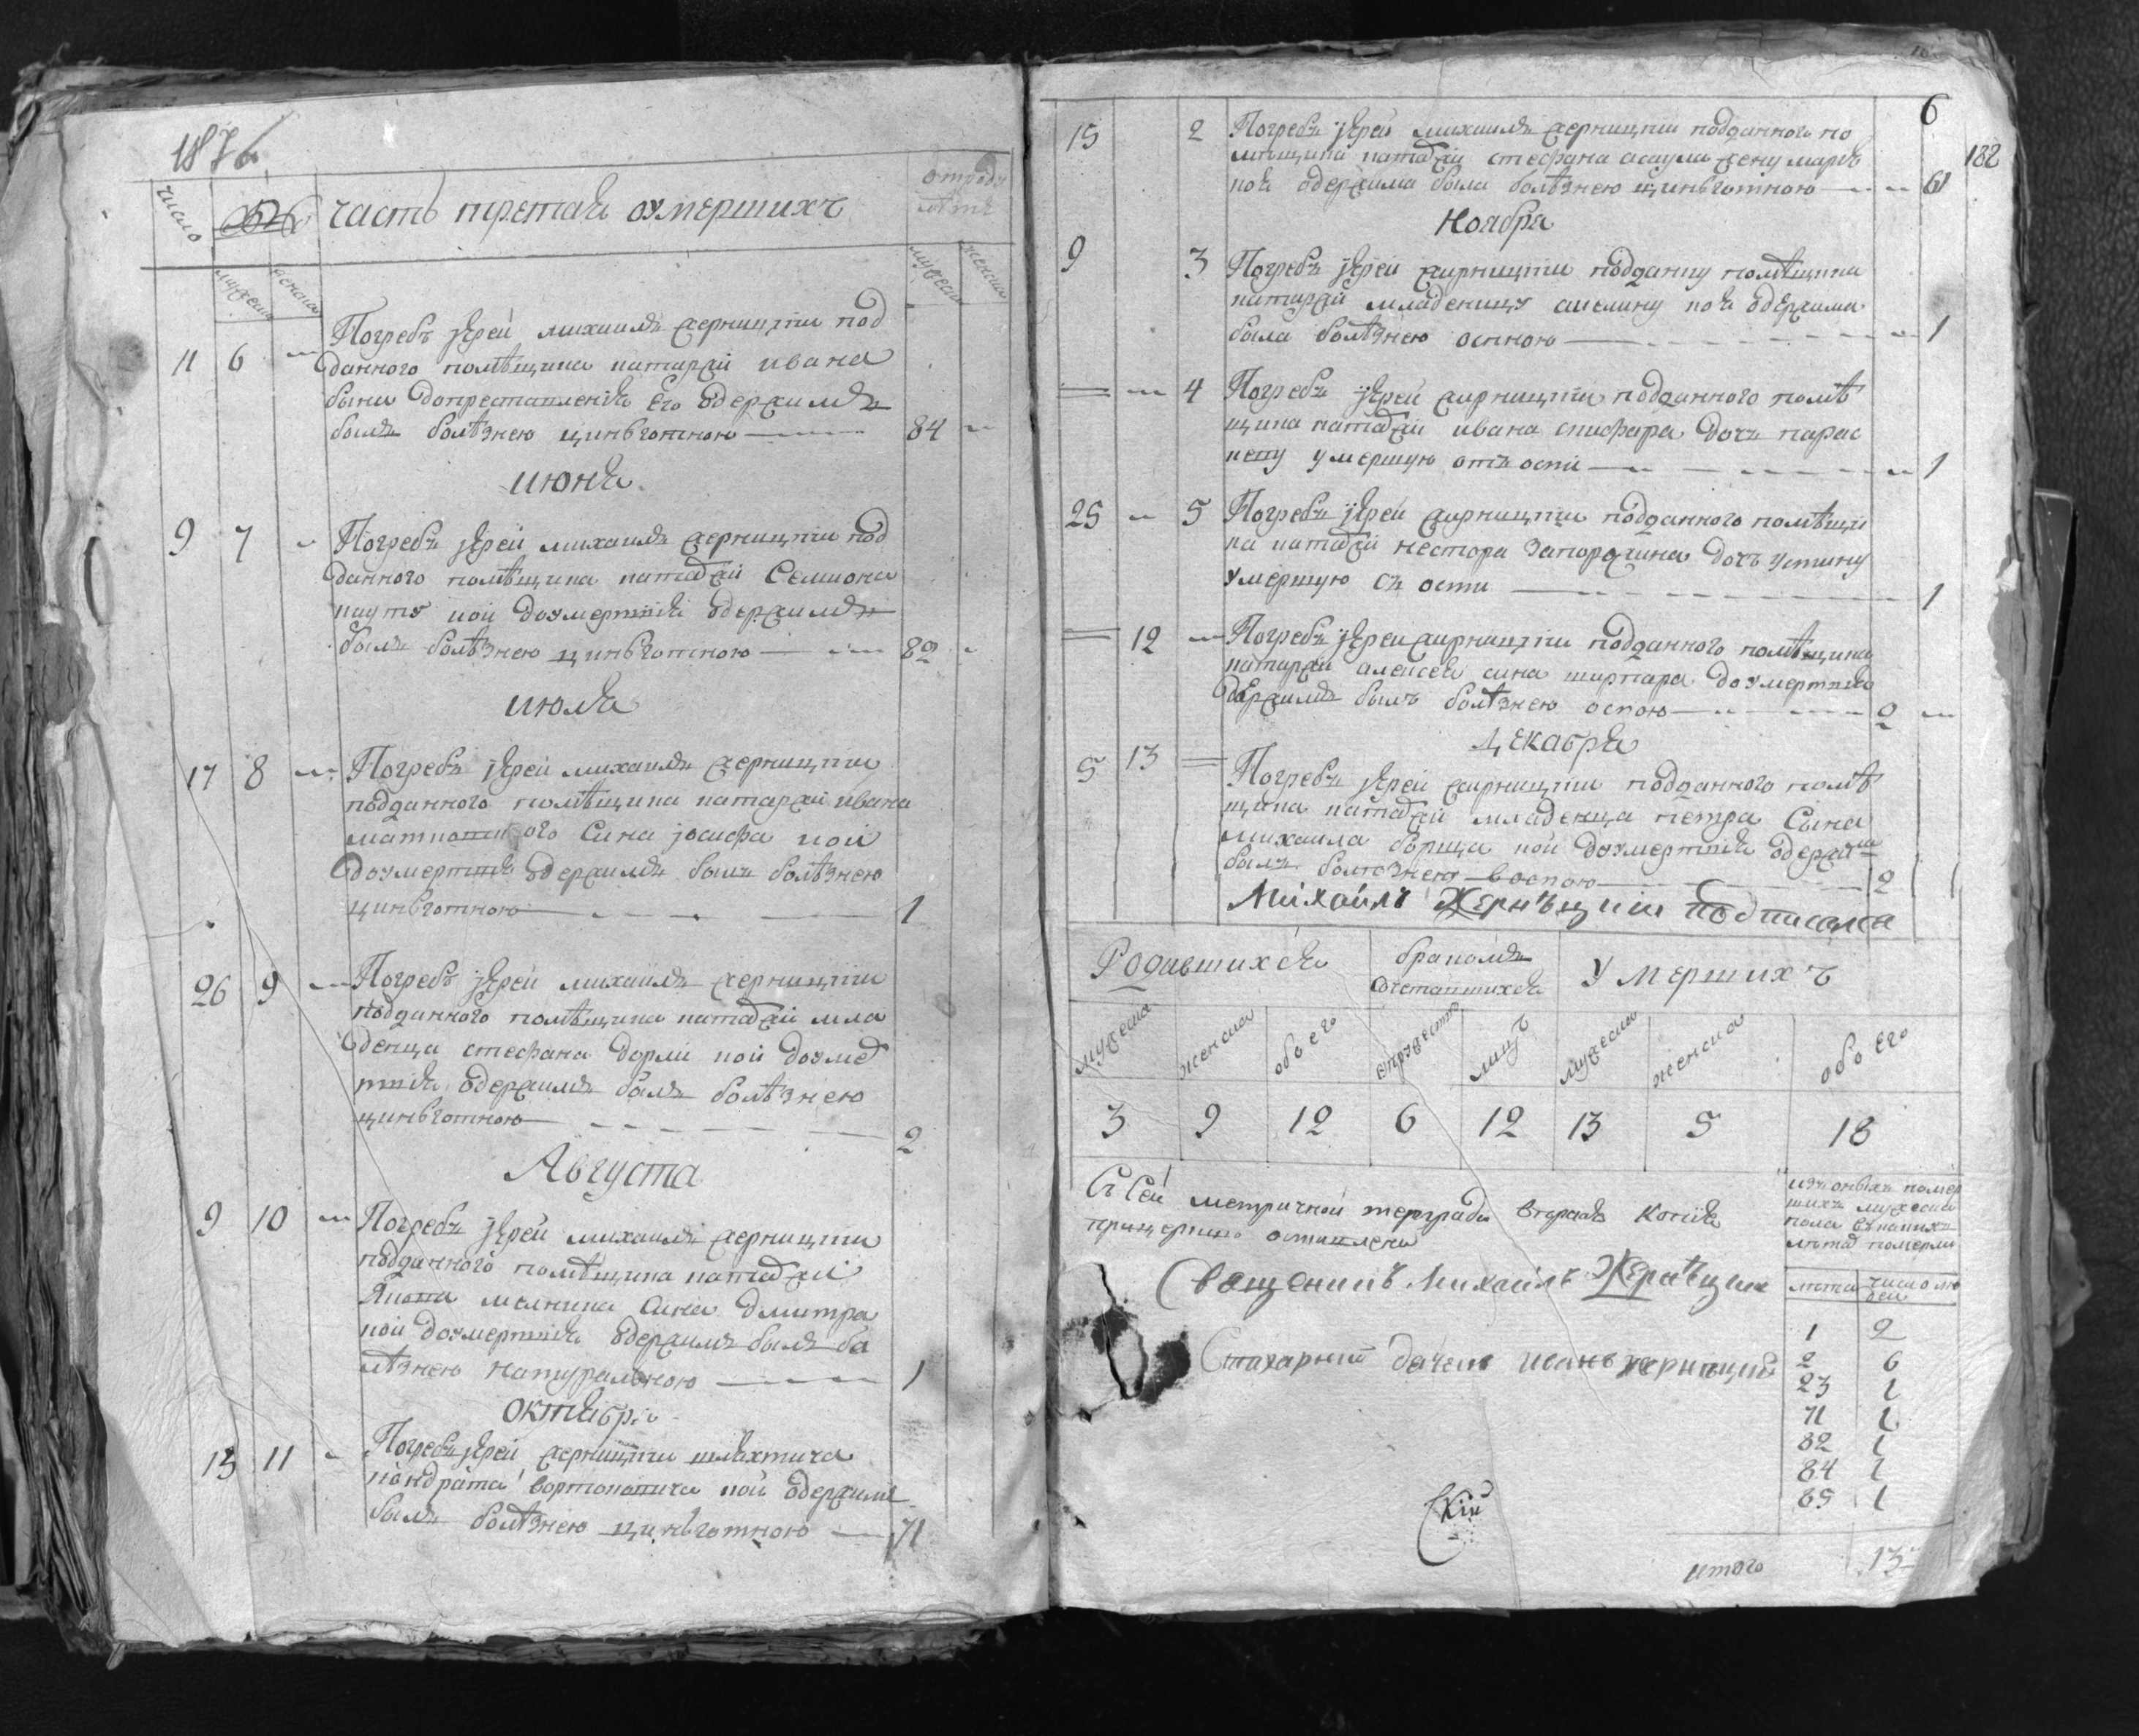 число
часть третая оумершихъ
мужеска
женска
отроду
лѣтъ
мужеска
женска
11 6 Погребъ іерей михаилъ жерницкій под
данного помѣщика катаржи ивана
быки допреставленія его одержимъ
былъ болѣзнею цинъготною 84
июня
9 7 Погребъ іерей михаилъ жерницкій под
данного помѣщика катаржи Семиона
кои доумертвія одержимъ
былъ болѣзнею цинъготною 82
июля
17 8 Погребъ іерей михаилъ жерницкій
подданного помѣщика катаржи ивана
сина іосифа кои
доумертвія одержимъ былъ болѣзнею
цинъготною 1
26 9 Погребъ іерей михаилъ жерницкій
подданного помѣщика катаржи мла
денца стефана кои доумер
твія одержимъ былъ болѣзнею
цинъготною 2
Августа
9 10 Погребъ іерей михаилъ жерницкій
подданного помѣщика катаржи
Якова мелника сина дмитра
кои доумертвія одержимъ былъ бо
лѣзнею натуралною 1
октября
13 11 Погребъ іерей жерницкій шляхтича
кондрата кои одержимъ
былъ болѣзнею цинъготною 71
6
182
15 2 Погребъ іерей михаилъ жерницкій подданного по
мѣщика катаржи стефана асаула жену марію
коя одержима была болѣзнею цинъготною 61
Ноября
9 3 Погребъ іерей жирницкій подданну помѣщика
катаржи младеницу акелину коя одержима
была болѣзнею оспною 1
4 Погребъ іерей жирницкій подданного помѣ
щика катаржи ивана дочъ парас
кеву умершую отъ оспи 1
25 5 Погребъ іерей жирницкій подданного помѣщи
ка катаржи нестора запорожина дочъ устину
умершую съ оспи 1
12 Погребъ іерей жирницкій подданного помѣщика
катаржи алексея сина доумертвія
одержимъ былъ болѣзнею оспою 2
Декабря
5 13 Погребъ іерей жирницкій подданного помѣ
щика катаржи младенца петра Сына
михаила борща кои доумертвія одержи
былъ болѣзнею воспою 2
Михаилъ Жернѣцкій подписалса
Родившихся
бракомъ
сочетавшихся
Умершихъ
мужеска женска обоего супружествъ лицъ мужеска женска обоего
3 9 12 6 12 13 5 18
Съ Сей метричной тетради вторая копія
прицеркво оставлена
Священикъ Михаилъ Жернѣцкій
Стихарний дячекъ иванъ жерницкій
изъ онихъ помер
шихъ мужеска
пола вкакихъ
лѣтах померли
лѣта число лю
дей
1 2
2 6
23 1
71 1
82 1
84 1
85 1
итого 13